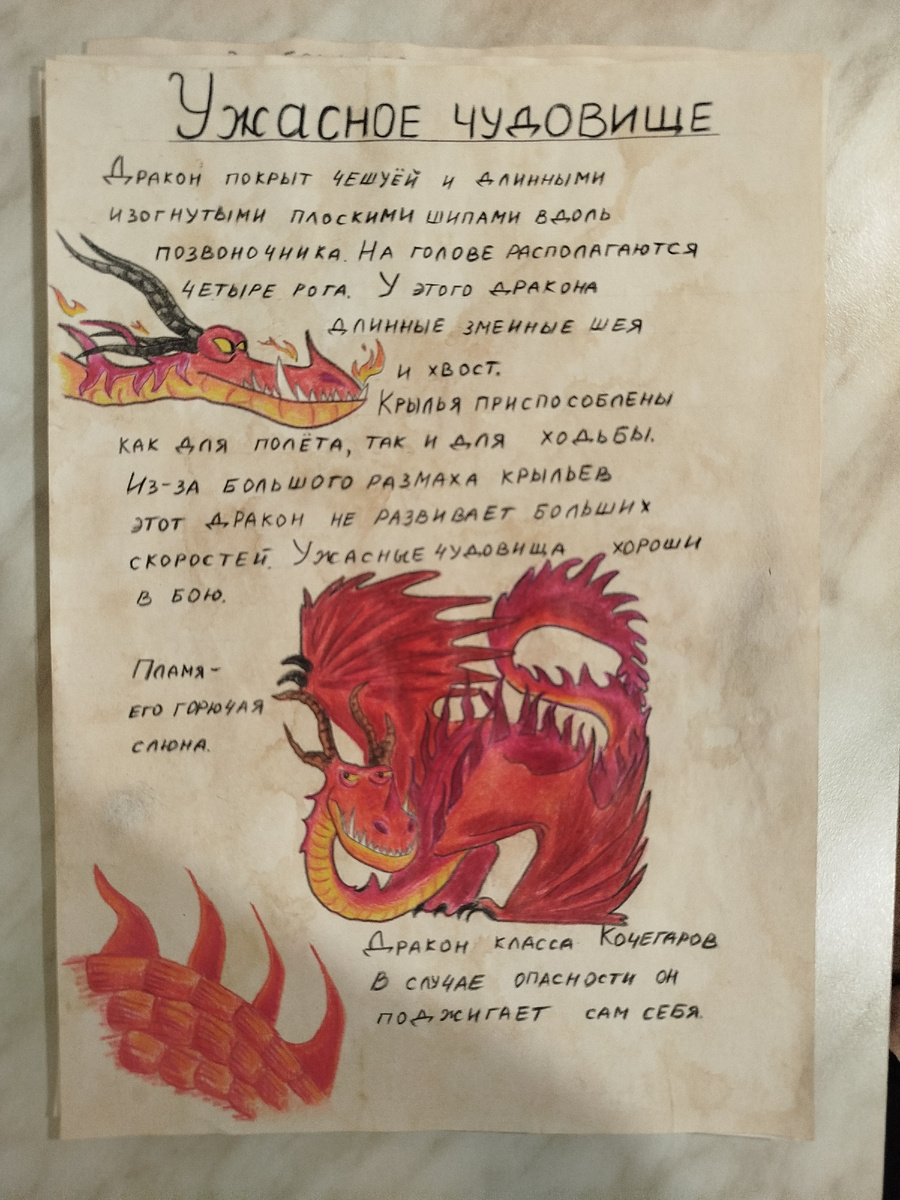 Ужасное чудовище
Дракон покрыт чешуёй и длинными
изогнутыми плоскими шипами вдоль
позвоночника. На голове располагаются
четыре рога. У этого дракона
длинные змеиные шея
и хвост.
Крылья приспособлены
как для полёта, так и для ходьбы.
Из-за большого размаха крыльев
этот дракон не развивает больших
скоростей. Ужасные чудовища хороши
в бою.
Пламя-
его горючая
слюна.
Дракон класса Кочегаров
В случае опасности он
поджигает сам себя.